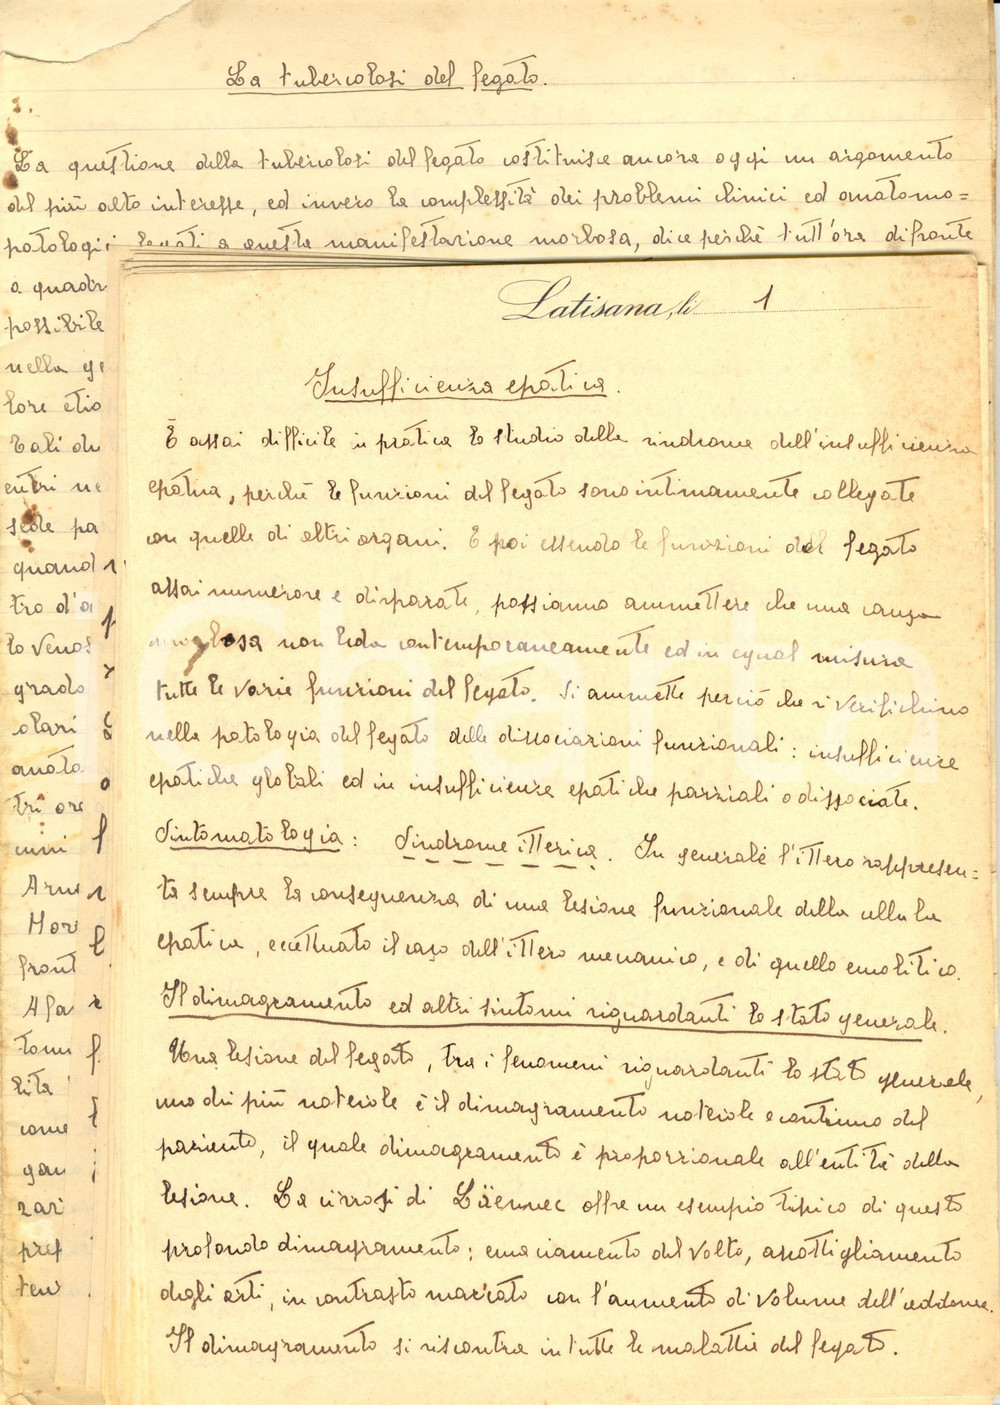 La tubercolosi del fegato.
La questione della tubercolosi del fegato costituisce ancora oggi un argomento
del più alto interesse, ed invero la complessità dei problemi clinici ed anatomo=
patologici legati a questa manifestazione morbosa, dice perchè tutt'ora difronte
a quadr
possibile
nella ge
lore etio
tali du
entri ne
sede pa
quand
tro d'a
lo Venos
grado
olari
anato
tri ore
cuni
Arne
Mor
front
Afa
tomi
lità
come
gan
zari
pref
ten
Latisana, li 1
Insufficienza epatica.
È assai difficile in pratica lo studio della sindrome dell'insufficienza
epatica, perchè le funzioni del fegato sono intimamente collegate
con quelle di altri organi. E poi essendo le funzioni del fegato
assai numerose e disparate, possiamo ammettere che una causa
morbosa non leda contemporaneamente ed in egual misura
tutte le varie funzioni del fegato. Si ammette perciò che si verifichino
nella patologia del fegato delle dissociazioni funzionali: insufficienze
epatiche globali ed in insufficienze epatiche parziali o dissociate.
Sintomatologia: Sindrome itterica. In generale l'ittero rappresen=
ta sempre la conseguenza di una lesione funzionale della cellula
epatica, eccettuato il caso dell'ittero meccanico, e di quello emolitico.
Il dimagramento ed altri sintomi riguardanti lo stato generale.
Una lesione del fegato, tra i fenomeni riguardanti lo stato generale,
uno dei più notevole è il dimagramento notevole e continuo del
paziente, il quale dimagramento è proporzionale all'entità della
lesione. La cirrosi di Läennec offre un esempio tipico di questo
profondo dimagramento: emaciamento del volto, assottigliamento
degli arti, in contrasto marcato con l'aumento di volume dell'addome.
Il dimagramento si riscontra in tutte le malattie del fegato.